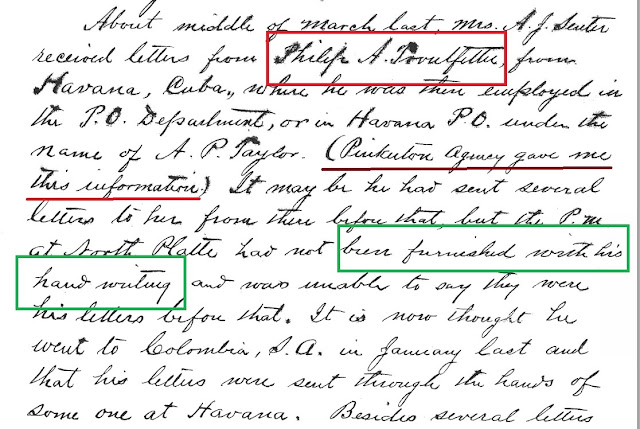 About middle of March last, Mrs. A. J. Senter
received letters from Philip A. from
Havana, Cuba, where he was then employed in
the P.O. Department, or in Havana P.O. under the
name of A. P. Taylor. (Pinkerton Agency gave me
this information) It may be he had sent several
letters to her from there before that, but the P.M.
at North Platte had not been furnished with his
hand writing and was unable to say they were
his letters before that. It is now thought he
went to Colombia, S.A. in January last and
that his letters were sent through the hands of
some one at Havana. Besides several letters